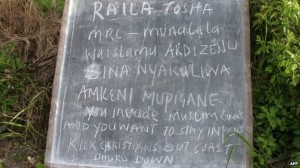 RAILA TOSHA
MRC - MUNALALA
WAISLAMU ARDIZENU
ZINA NYAKULIWA
AMKENI MUPIGANE
you invade muslim
AND you WANT TO STAY IN
KICK CHRISTIANS OUT COAST
UHURU DOWN
AFP